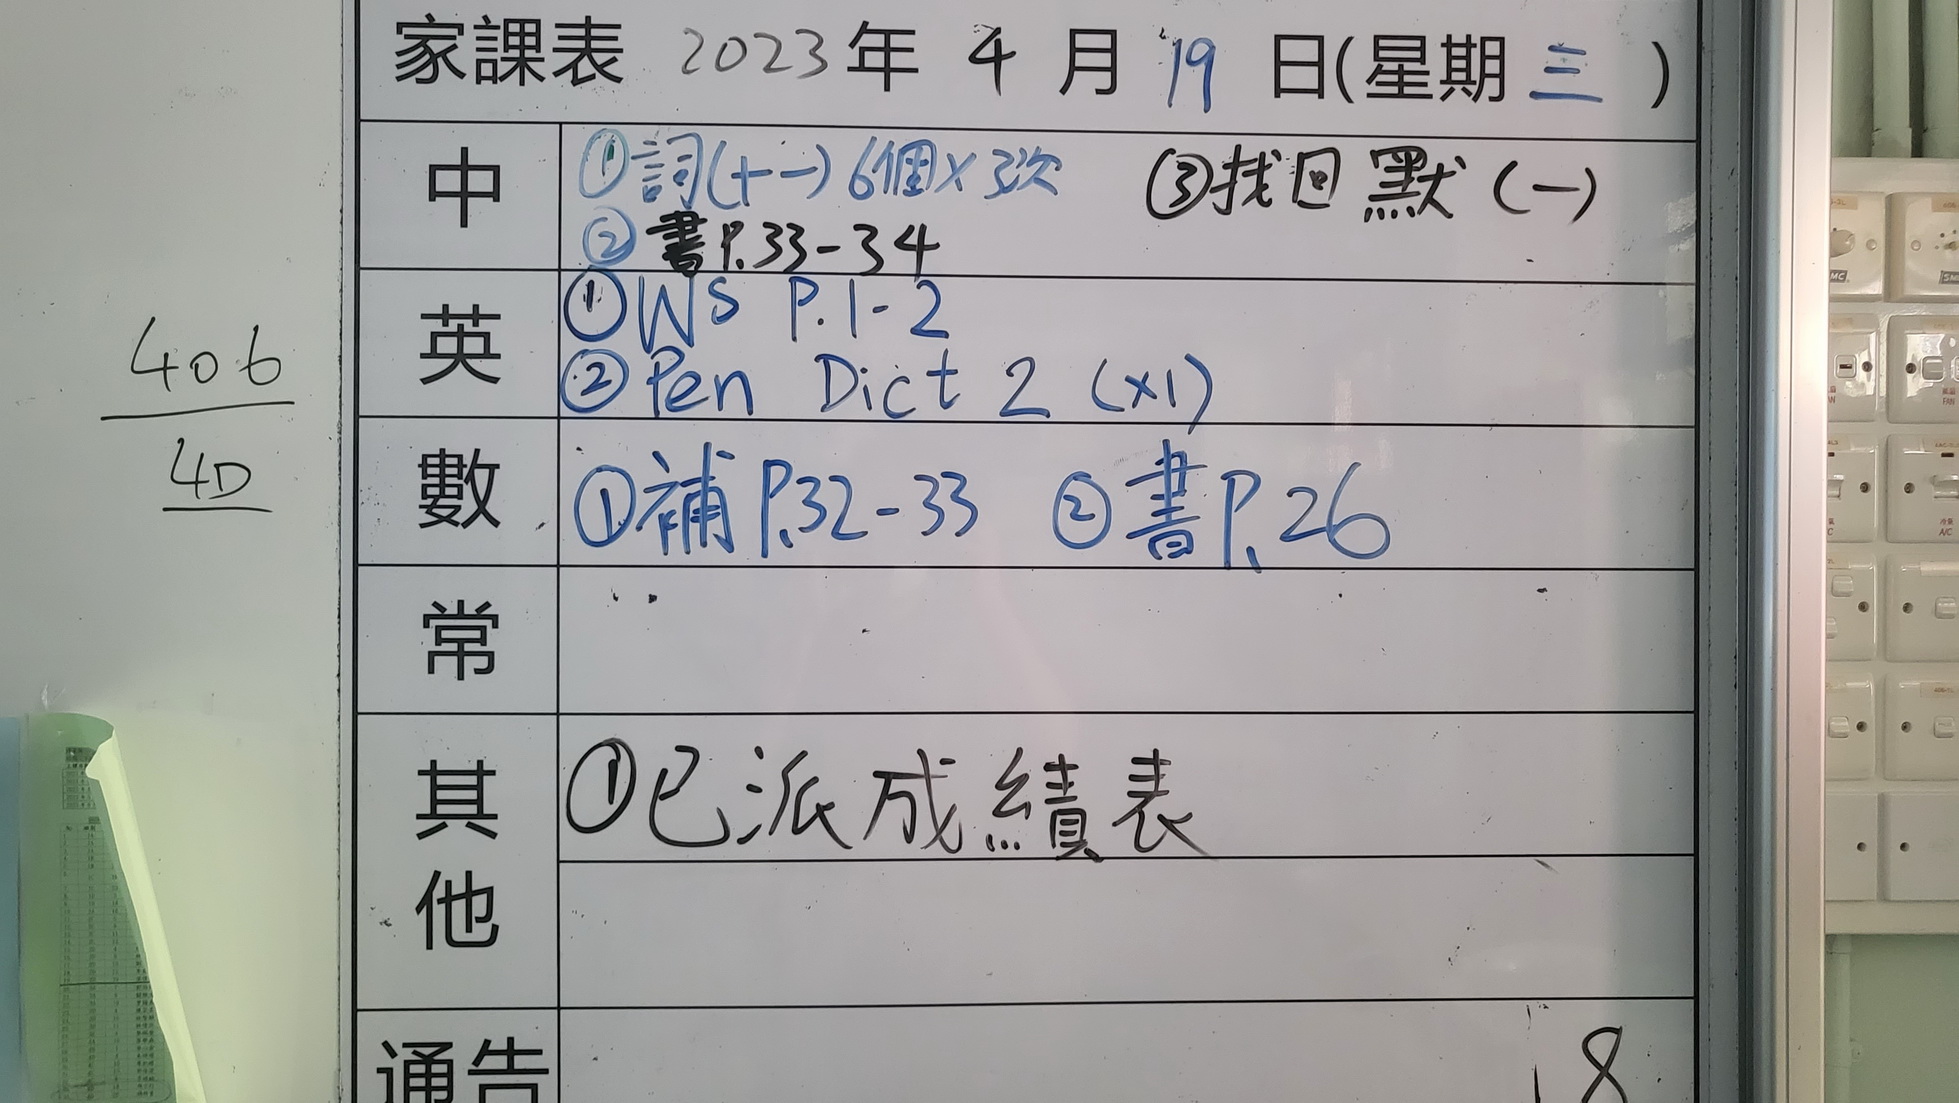 家課表 2023年 4月 19日(星期三)
中
①詞(十一)6個×3次 ③找回默(一)
②書P.33-34
英
①WS P.1-2
②Pen Dict 2 (×1)
數
①補P.32-33 ②書P.26
常
其他
①已派成績表
通告
8
406
4D